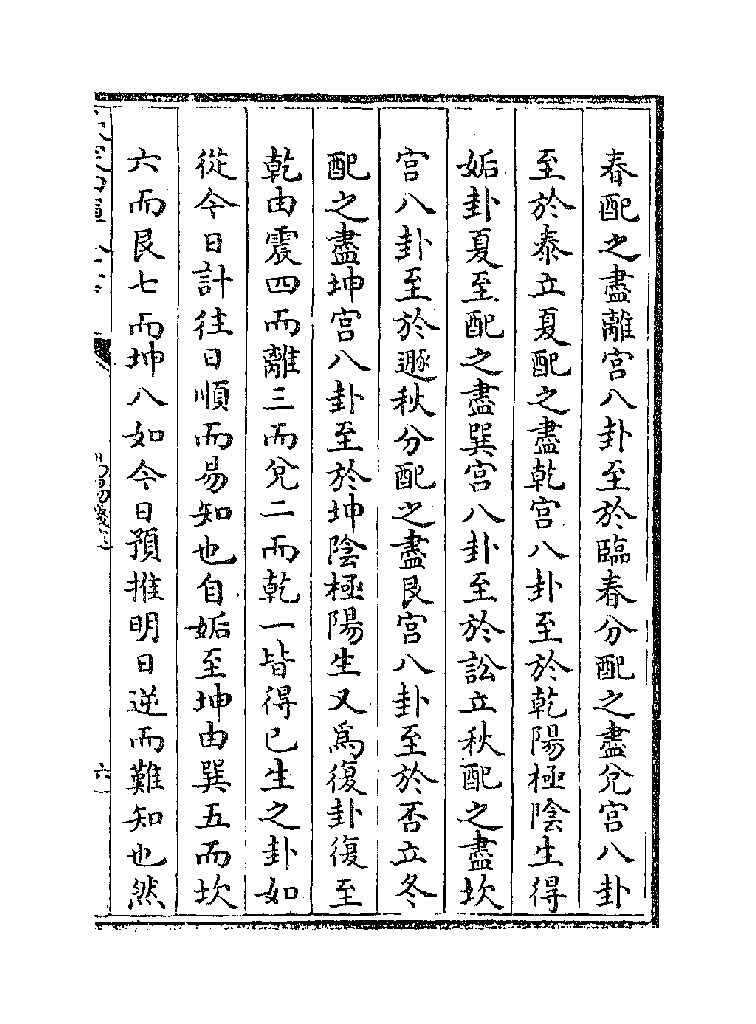 春配之盡離宮八卦至於臨春分配之盡兌宮八卦
至於泰立夏配之盡乾宮八卦至於乾陽極陰生得
姤卦夏至配之盡巽宮八卦至於訟立秋配之盡坎
宮八卦至於遯秋分配之盡艮宮八卦至於否立冬
配之盡坤宮八卦至於坤陰極陽生又爲復卦復至
乾由震四而離三而兌二而乾一皆得已生之卦如
從今日計往日順而易知也自姤至坤由巽五而坎
六而艮七而坤八如今日預推明日逆而難知也然
六